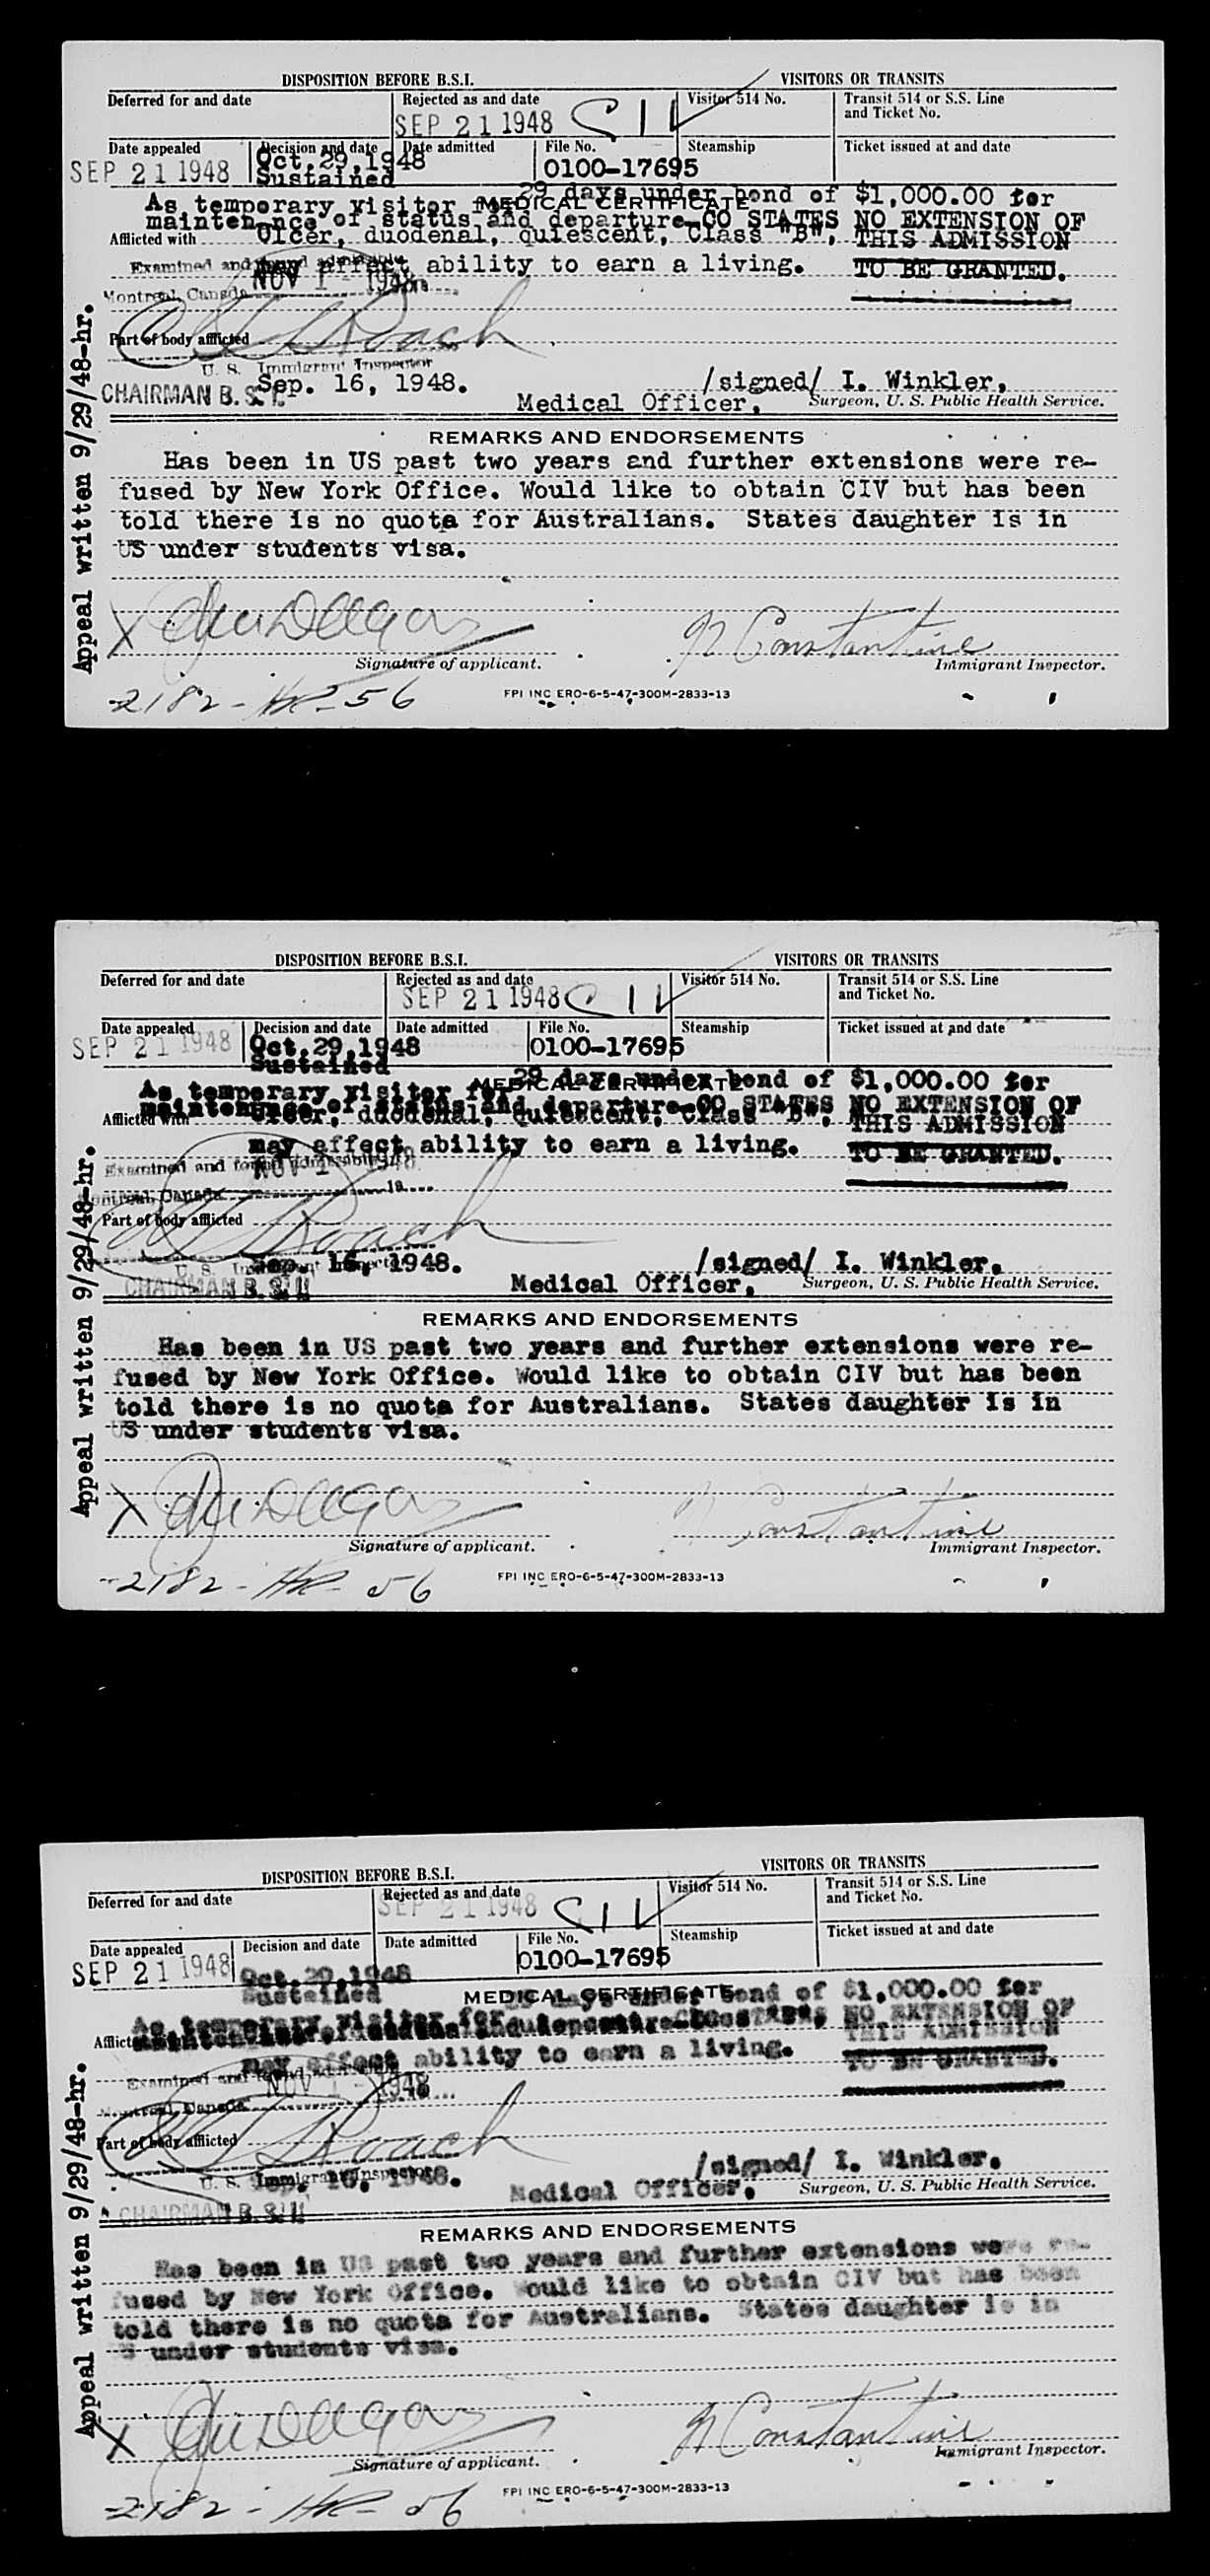 DISPOSITION BEFORE B.S.I. VISITORS OR TRANSITS
Deferred for and date Rejected as and date Visitor 514 No. Transit 514 or S.S. Line
and Ticket No.
SEP 21 1948
Date appealed Decision and date Date admitted File No. Steamship Ticket issued at and date
SEP 21 1948 Oct.29,1948 0100-17695
Sustained
MEDICAL CERTIFICATE
As temporary visitor for 29 days under bond of $1,000.00 for
maintenance of status and departure-CO STATES NO EXTENSION OF
Afflicted with Ulcer, duodenal, quiescent, Class "B", THIS ADMISSION
may affect ability to earn a living. TO BE GRANTED.
Examined and found admissible
NOV 1 - 1948
Montreal, Canada
Roach
Part of body afflicted
U. S. Immigrant Inspector
Sep. 16, 1948. /signed/ I. Winkler,
CHAIRMAN B. S. I.
Medical Officer, Surgeon, U. S. Public Health Service.
Appeal written 9/29/48-hr.
REMARKS AND ENDORSEMENTS
Has been in US past two years and further extensions were re-
fused by New York Office. Would like to obtain CIV but has been
told there is no quota for Australians. States daughter is in
US under students visa.
X
N Constantine
Signature of applicant. Immigrant Inspector.
2182 - 56
FPI INC ERO-6-5-47-300M-2833-13
DISPOSITION BEFORE B.S.I. VISITORS OR TRANSITS
Deferred for and date Rejected as and date Visitor 514 No. Transit 514 or S.S. Line
and Ticket No.
SEP 21 1948
Date appealed Decision and date Date admitted File No. Steamship Ticket issued at and date
SEP 21 1948 Oct.29,1948 0100-17695
Sustained
MEDICAL CERTIFICATE
As temporary visitor for 29 days under bond of $1,000.00 for
maintenance of status and departure-CO STATES NO EXTENSION OF
Afflicted with Ulcer, duodenal, quiescent, Class "B", THIS ADMISSION
may affect ability to earn a living. TO BE GRANTED.
Examined and found admissible
NOV 1 1948
Montreal, Canada 19
Roach
Part of body afflicted
U. S. Immigrant Inspector
Sep. 16, 1948. /signed/ I. Winkler,
CHAIRMAN B. S. I.
Medical Officer, Surgeon, U. S. Public Health Service.
Appeal written 9/29/48-hr.
REMARKS AND ENDORSEMENTS
Has been in US past two years and further extensions were re-
fused by New York Office. Would like to obtain CIV but has been
told there is no quota for Australians. States daughter is in
US under students visa.
X
N Constantine
Signature of applicant. Immigrant Inspector.
2182 - 56
FPI INC ERO-6-5-47-300M-2833-13
DISPOSITION BEFORE B.S.I. VISITORS OR TRANSITS
Deferred for and date Rejected as and date Visitor 514 No. Transit 514 or S.S. Line
and Ticket No.
SEP 21 1948
Date appealed Decision and date Date admitted File No. Steamship Ticket issued at and date
SEP 21 1948 Oct.29,1948 0100-17695
Sustained
MEDICAL CERTIFICATE
As temporary visitor for 29 days under bond of $1,000.00 for
NO EXTENSION OF
Afflicted THIS ADMISSION
may affect ability to earn a living. TO BE GRANTED.
Examined and found admissible
NOV 1 - 1948
Montreal, Canada
Roach
Part of body afflicted
U. S. Immigrant Inspector
Sep. 16, 1948. /signed/ I. Winkler,
CHAIRMAN B. S. I.
Medical Officer, Surgeon, U. S. Public Health Service.
Appeal written 9/29/48-hr.
REMARKS AND ENDORSEMENTS
Has been in US past two years and further extensions were re-
fused by New York Office. Would like to obtain CIV but has been
told there is no quota for Australians. States daughter is in
US under students visa.
X
N Constantine
Signature of applicant. Immigrant Inspector.
2182 - 56
FPI INC ERO-6-5-47-300M-2833-13